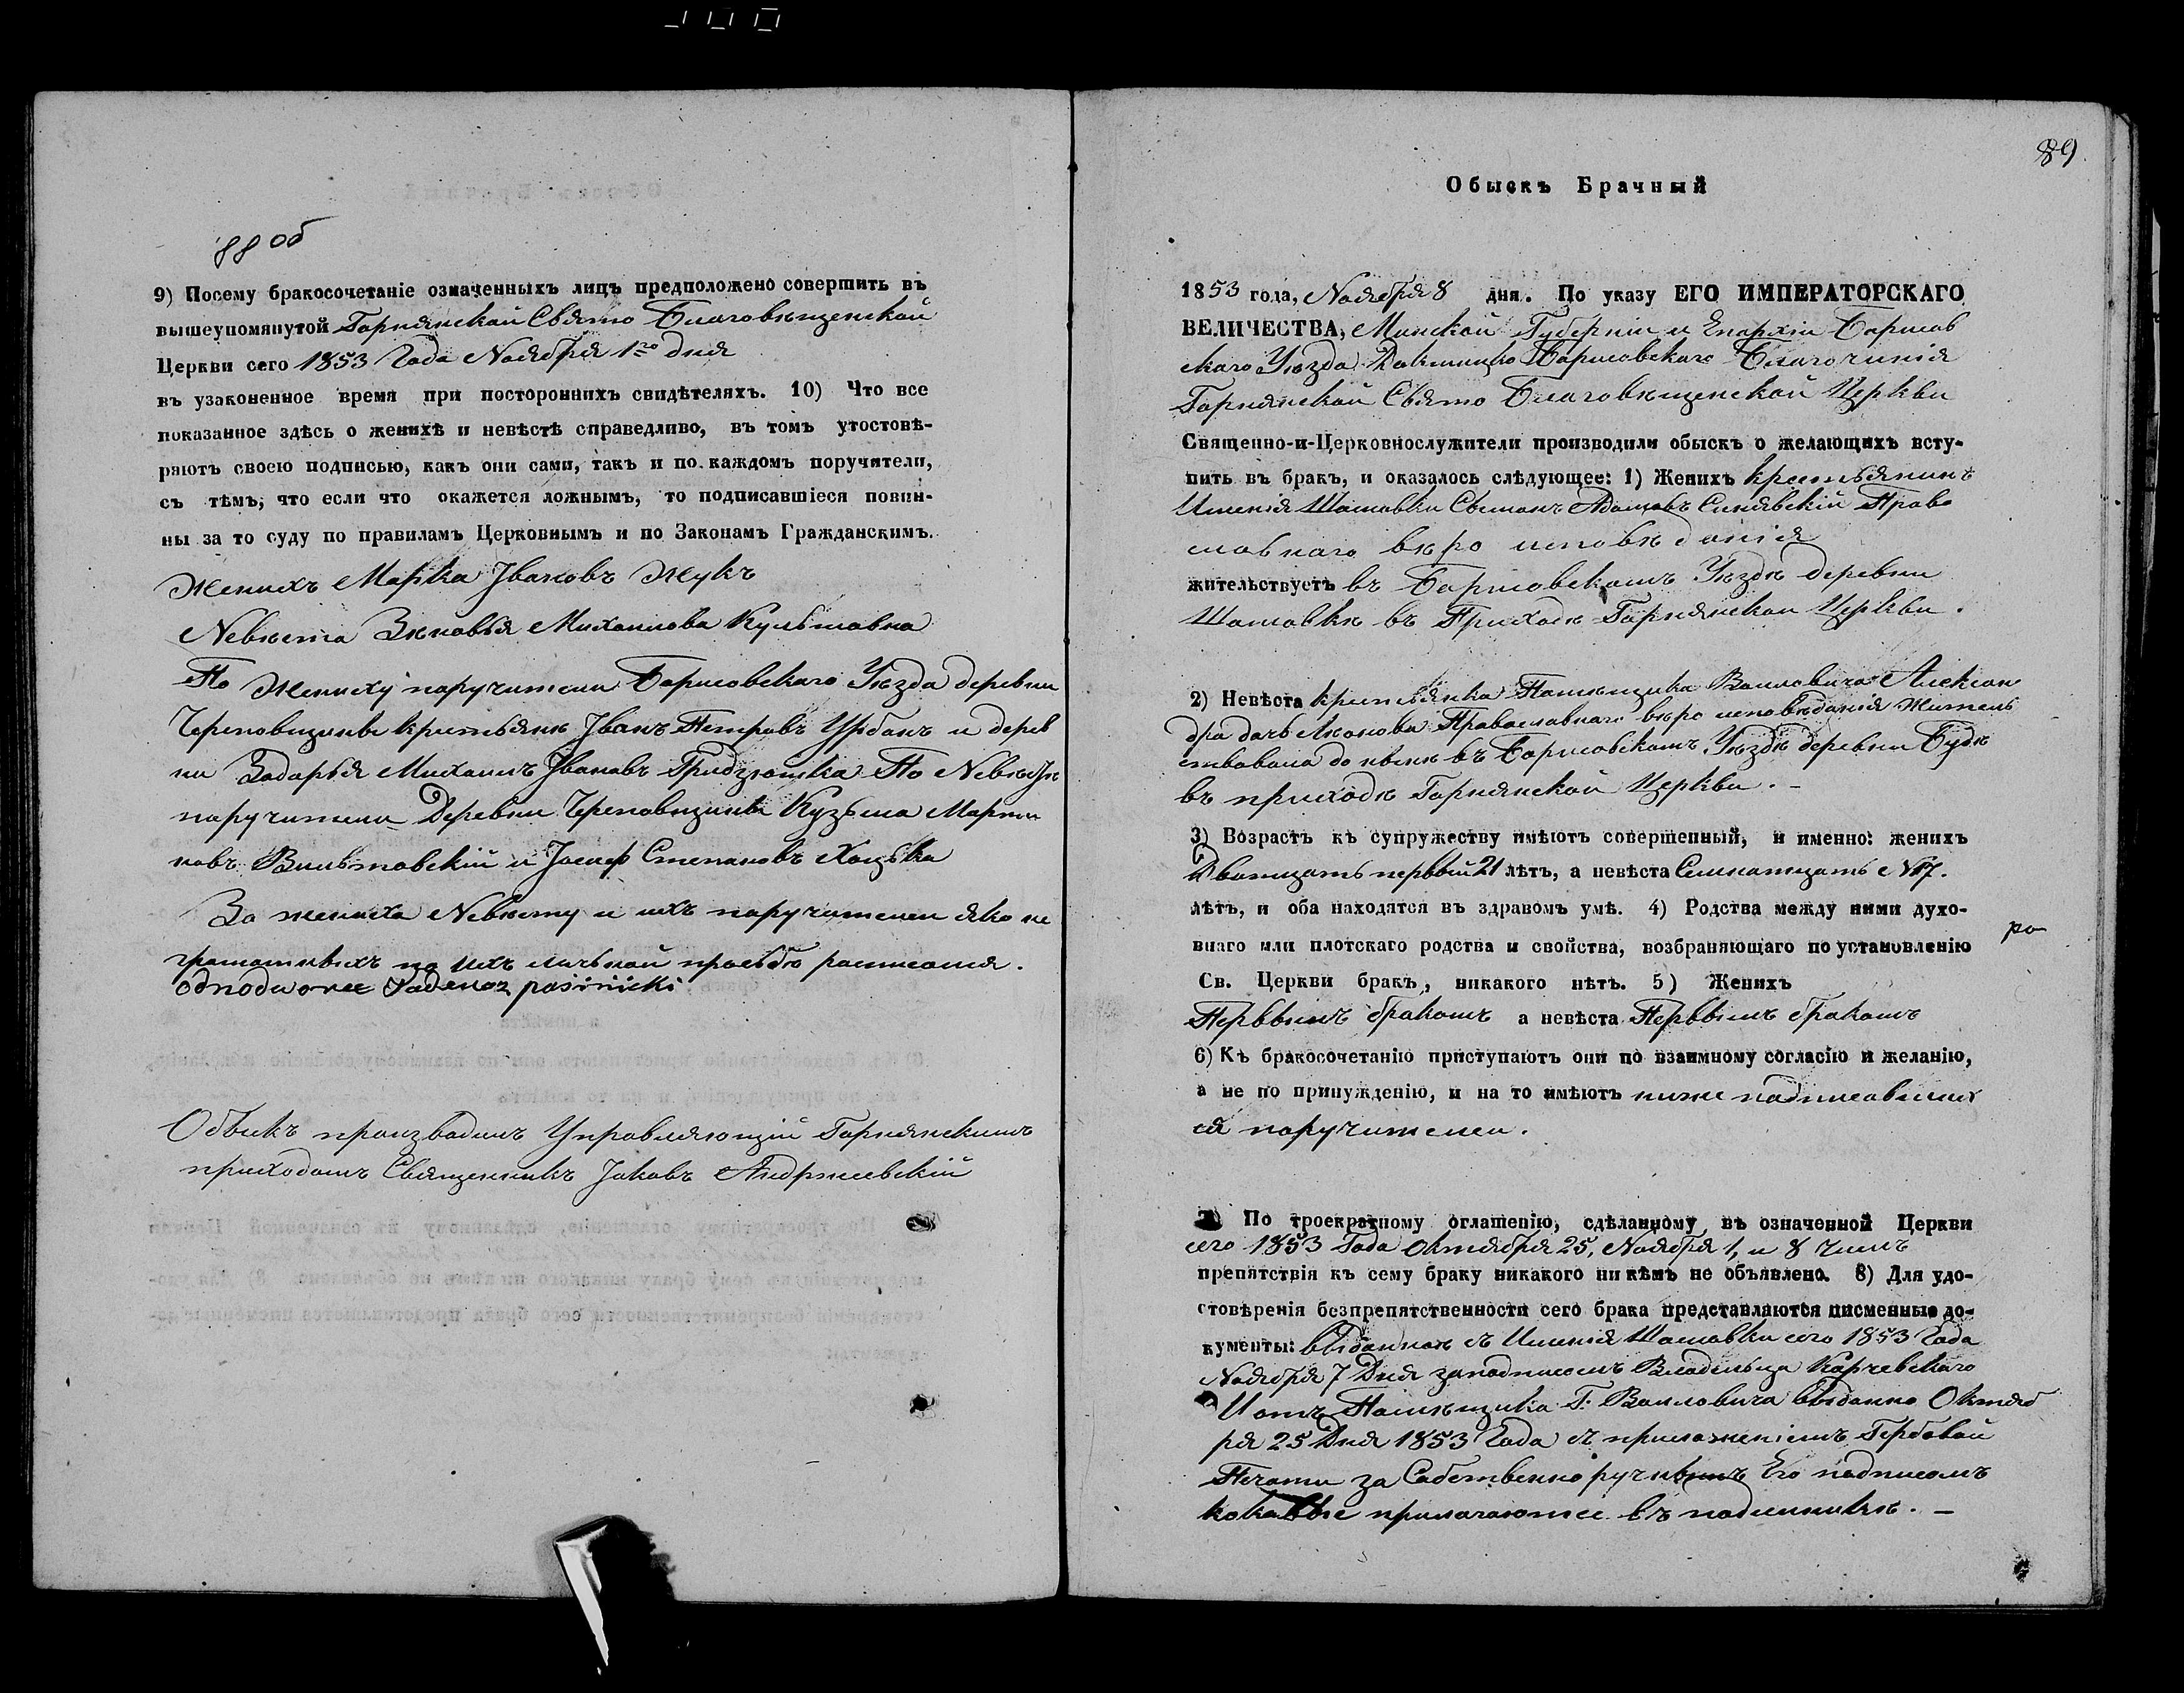 88 об
9) Посему бракосочетаніе означенныхъ лицъ предположено совершить въ
вышеупомянутой Горнянской Свято Благовѣщенской
Церкви сего 1853 Года Ноября 1го дня
въ узаконенное время при постороннихъ свидѣтеляхъ. 10) Что все
показанное здѣсь о женихѣ и невѣстѣ справедливо, въ томъ утостовѣ-
ряютъ своею подписью, какъ они сами, такъ и по каждомъ поручители,
съ тѣмъ, что если что окажется ложнымъ, то подписавшіеся повин-
ны за то суду по правиламъ Церковнымъ и по Законамъ Гражданскимъ.
Женихъ Марка Івановъ Жукъ
Невѣста Зѣновья Михаилова
По Жениху поручители Борисовскаго Уѣзда деревни
Іванъ Петровъ Урбанъ и дерев
ни Задорья Михаилъ Івановъ По Невѣстѣ
поручители Деревни Кузьма Марти
новъ и Іосиф Степановъ Хоцька
За жениха Невѣсту и ихъ поручителеи яко не
грамотныхъ по ихъ личной прозьбѣ росписался.
Обыскъ произвадилъ Управляющій Горнянскимъ
приходомъ Священникъ Іаковъ Андржиевскій
89
Обыскъ Брачный
1853 года, Ноября 8 дня. По указу ЕГО ИМПЕРАТОРСКАГО
ВЕЛИЧЕСТВА, Минской Губерніи и Епархіи Борисов
скаго Уѣзда Борисовскаго Благочинія
Горнянской Свято Благовѣщенской Церкви
Священно-и-Церковнослужители производили обыскъ о желающихъ всту-
пить въ бракъ, и оказалось слѣдующее: 1) Женихъ крестьянинъ
Имѣнія Шамовки Сымонъ Адамовъ Синявскій Право
славнаго вѣро исповѣданія
жительствуетъ въ Борисовскомъ Уѣздѣ деревни
Шамовкѣ въ Приходѣ Горнянскои Церкви.
2) Невѣста крестьянка Помѣщика Воиловича Алексан
дра дочь Православнаго вѣро исповѣданія житель
ствовала до нынѣ въ Борисовскомъ Уѣздѣ деревни Будѣ
въ приходѣ Горнянской Церкви. -
3) Возрастъ къ супружеству имѣютъ совершенный, и именно: женихъ
Дватцать первый 21 лѣтъ, а невѣста Семнатцать 17.
лѣтъ, и оба находятся въ здравомъ умѣ. 4) Родства между ними духо-
внаго или плотскаго родства и свойства, возбраняющаго по установленію
ро
Св. Церкви бракъ, никакого нѣтъ. 5) Женихъ
Первымъ бракомъ а невѣста Первымъ бракомъ
6) Къ бракосочетанію приступаютъ они по взаимному согласію и желанію,
а не по принужденію, и на то имѣютъ ниже подписавших
ся поручителеи.
7) По троекратному оглашенію, сдѣланному въ означенной Церкви
сего 1853 Года Октября 25, Ноября 1, и 8 чиселъ
препятствія къ сему браку никакого ни кѣмъ не объявлено. 8) Для удо-
стовѣренія безпрепятственности сего брака представляются писменные до-
кументы: съ Имѣнія Шамовки сего 1853 Года
Ноября 7 Дня заподписомъ Владельца Корчевскаго
И отъ Помѣщика Г. Воиловича выданно Октяб
ря 25 Дня 1853 Года съ приложеніемъ Гербовои
Печати за Собственно ручнымъ Его подписомъ
каковые прилагаются въ подлинникѣ. -